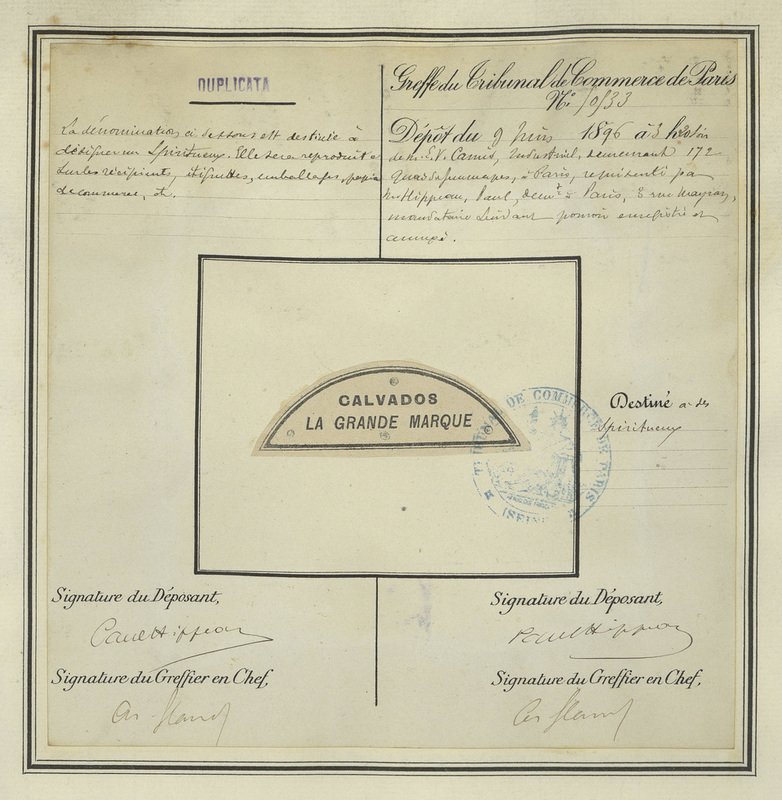 DUPLICATA
La dénomination ci dessous est destinée à
désigner un Spiritueux. Elle sera reproduite
sur les récipients, étiquettes, emballages, papiers
de commerce, etc.
Greffe du Tribunal de Commerce de Paris
No
Dépôt du 9 Juin 1896 à 3 h
de Mr Camus, Industriel, demeurant 172
Quai de Jemmapes, à Paris, représenté par
Mr Hippeau, Paul, demt à Paris, 8 rue Mayran,
mandataire suivant pouvoir enregistré et
annexé.
CALVADOS
LA GRANDE MARQUE
TRIBUNAL DE COMMERCE DE PARIS
(SEINE)
Destiné à des
Spiritueux
Signature du Déposant,
Paul Hippeau
Signature du Greffier en Chef,
Signature du Déposant,
Paul Hippeau
Signature du Greffier en Chef,